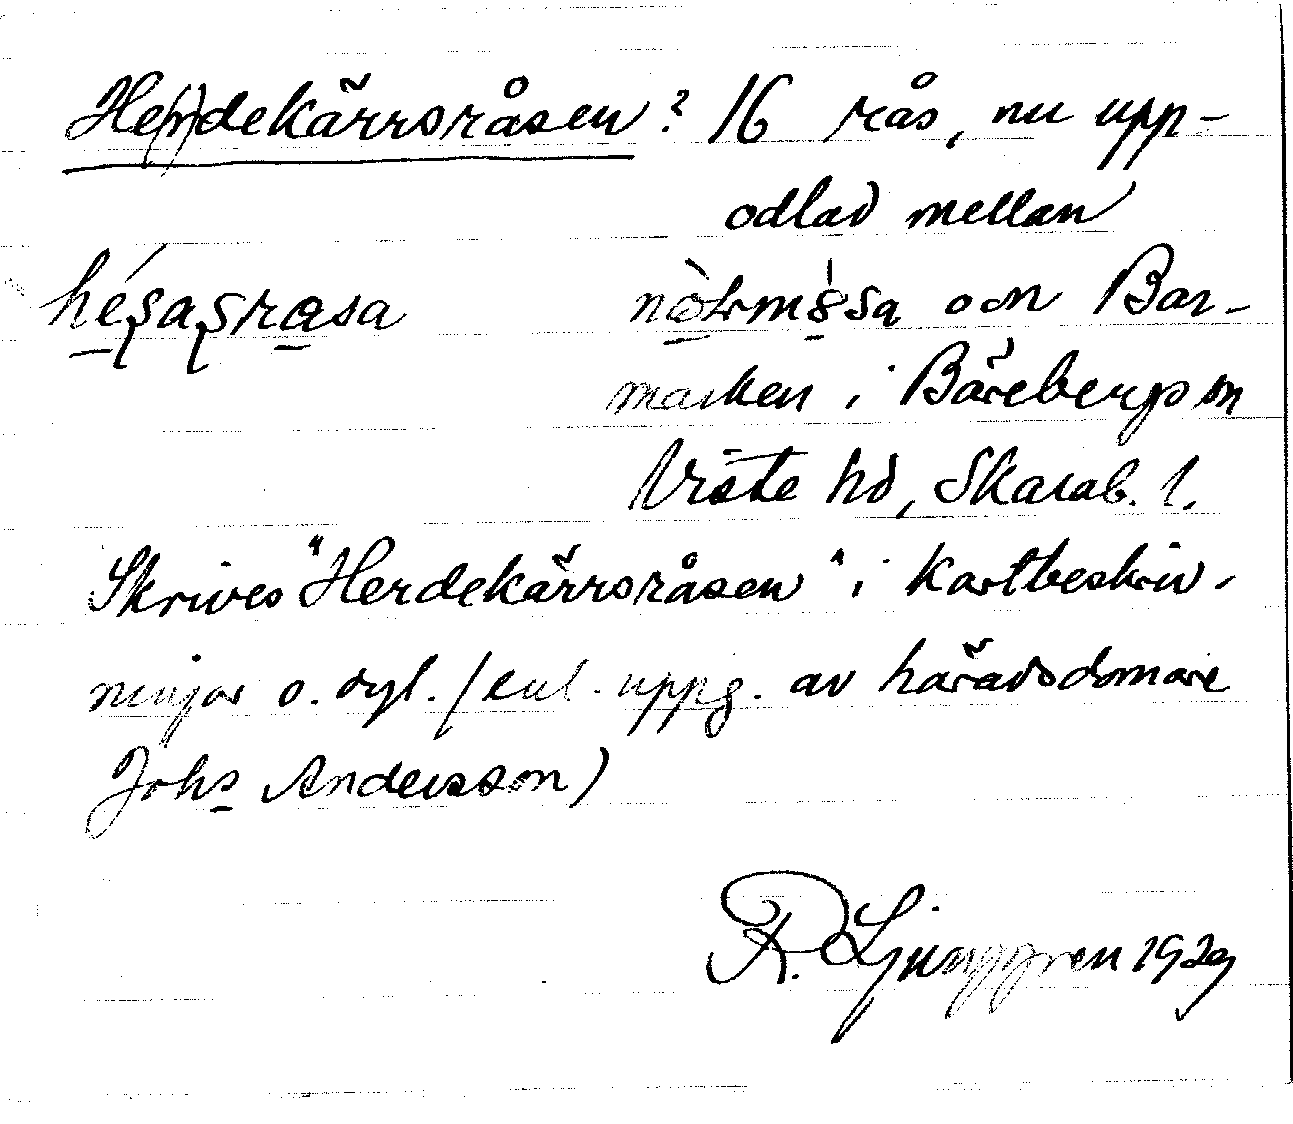 He(r)dekärrsråsen? 16 rås, nu upp-
odlad mellan
och Bar-
marken i Bärebergs sn
Viste hd, Skarab. l.
Skrives "Herdekärrsråsen" i kartbeskriv-
ningar o. dyl. (enl. uppg. av häradsdomare
Johs Andersson)
R. Ljunggren 1929